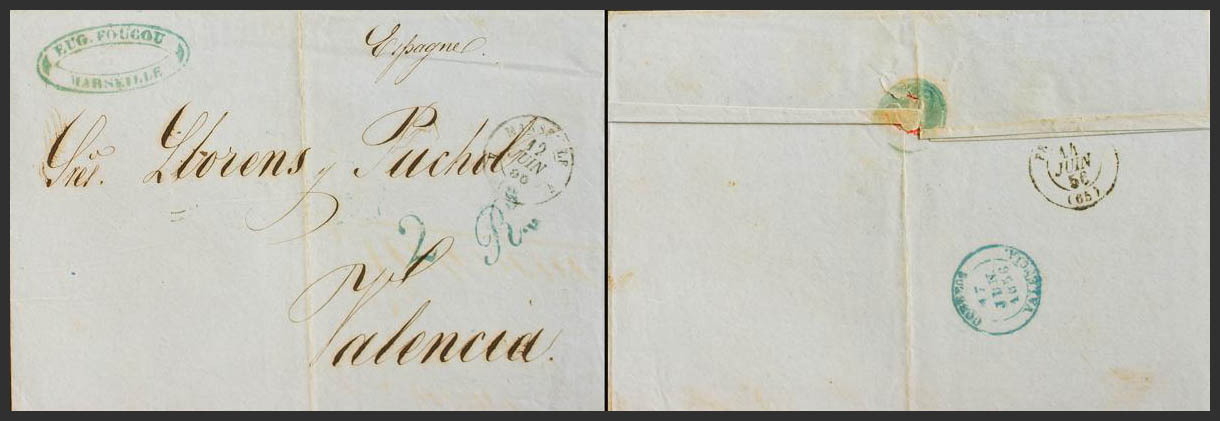 EUG. FOUCOU
MARSEILLE
Espagne.
Sres. Llorens y Puchol
MARSEILLE
12
JUIN
56
2 Rs.
Valencia.
14
JUIN
56
(65)
VALENCIA.
17
JUN
1856